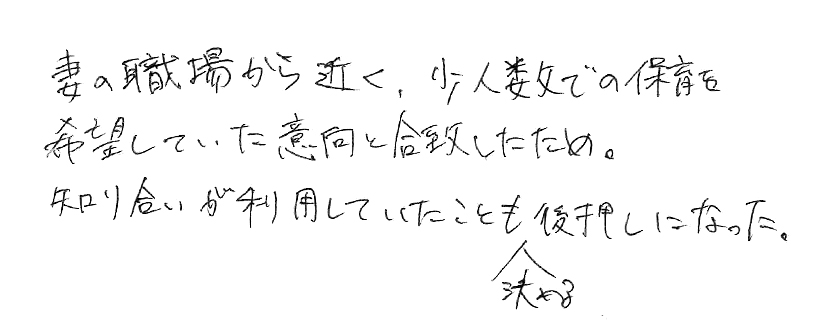 妻の職場から近く、少人数での保育を
希望していた意向と合致したため。
知り合いが利用していたことも後押しになった。
決める